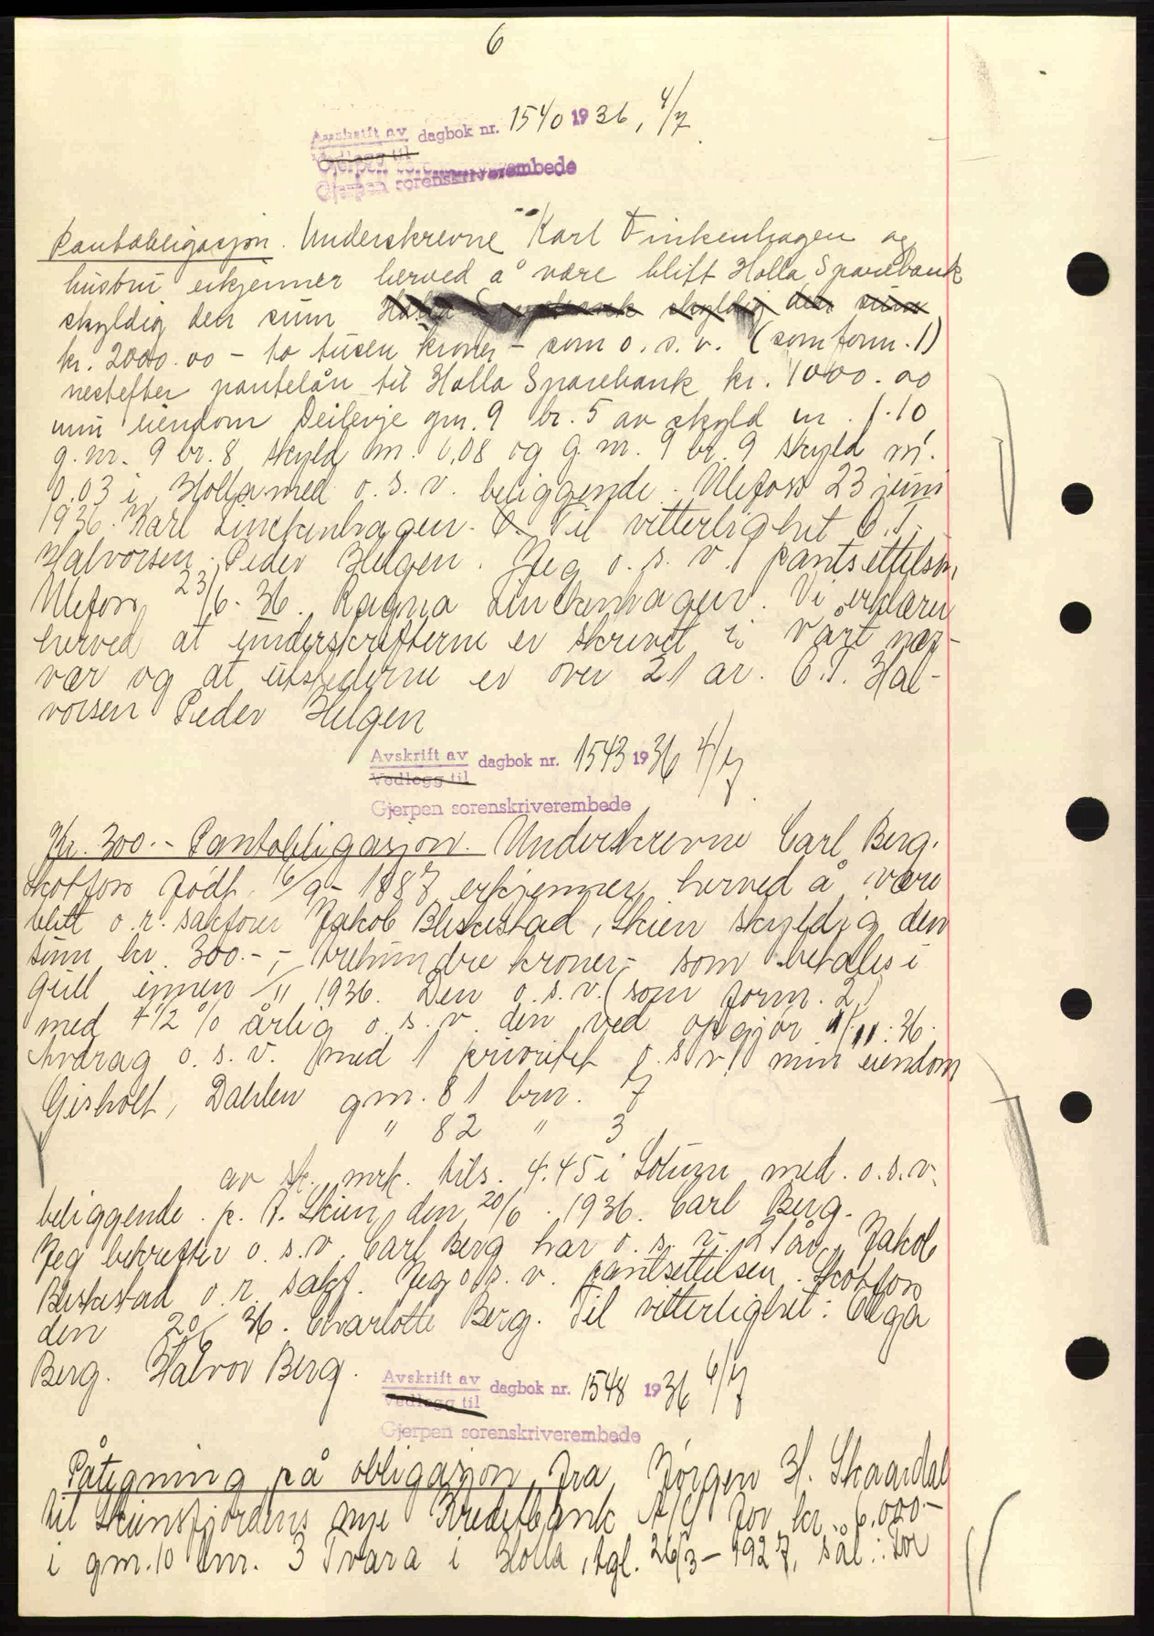 6
Avskrift av dagbok nr. 1540 1936, 4/7
Vedlegg til
Gjerpen sorenskriverembede
Pantobligasjon. Underskrevne Karl Finkenhagen og
hustru erkjenner herved å være blitt Holla Sparebank
skyldig den sum Holla Sparebank skyldig den sum
kr. 2000.00 - to tusen kroner - som o.s.v. (som form. 1)
nestefter pantelån til Holla Sparebank kr. 4000.00
min eiendom gnr. 9 br. 5 av skyld m. 1.10,
g.nr. 9 br. 8, skyld m. 0,08 og g.nr. 9 br. 9 skyld m.
0.03 i Holla med o.s.v. beliggende. Ulefoss 23 juni
1936. Karl Linckenhagen. Til vitterlighet O.T.
Halvorsen. Peder Helgen. Jeg o.s.v. pantsettelsen
Ulefoss 23/6-36. Ragna Linckenhagen. Vi erklærer
herved at underskrifterne er skrevet i vårt nær-
vær og at utstederne er over 21 år. O.T. Hal-
vorsen Peder Helgen
Avskrift av dagbok nr. 1543 1936 4/7
Vedlegg til
Gjerpen sorenskriverembede
Kr. 300.- Pantobligasjon. Underskrevne Carl Berg.
Skotfoss født 16/9-1887 erkjenner herved å være
blitt o.r. sakfører Jakob Blekestad, Skien skyldig den
sum kr. 300.-, - trehundre kroner - som betales i
gull innen 1/11 1936. Den o.s.v. (som form. 2)
med 4 1/2 % årlig o.s.v. den ved opgjør 1/11.36.
Avdrag o.s.v. med 1 prioritet o.s.v. min eiendom
Gisholt, Dahlen gnr. 81 brn. 7
" 82 " 3
av sk. mrk. tils. 4.45 i Solum med o.s.v.
beliggende. p.t. Skien, den 20/6. 1936. Carl Berg.
Jeg bekrefter o.s.v. Carl Berg har o.s.v. 21 år. Jakob
Blekestad o.r. sakf. Jeg o.s.v. pantsettelsen. Skotfoss
den 20/6 36. Charlotte Berg. Til vitterlighet: Olga
Berg. Halvor Berg.
Avskrift av dagbok nr. 1548 1936 6/7
Vedlegg til
Gjerpen sorenskriverembede
Påtegning på obligasjon fra Jørgen H. Skaardal
til Skiensfjordens nye Kreditbank A/S for kr. 6.000-
i gnr. 10 bnr. 3 Tvara i Holla, tgl. 26/3-1927, sål.: For